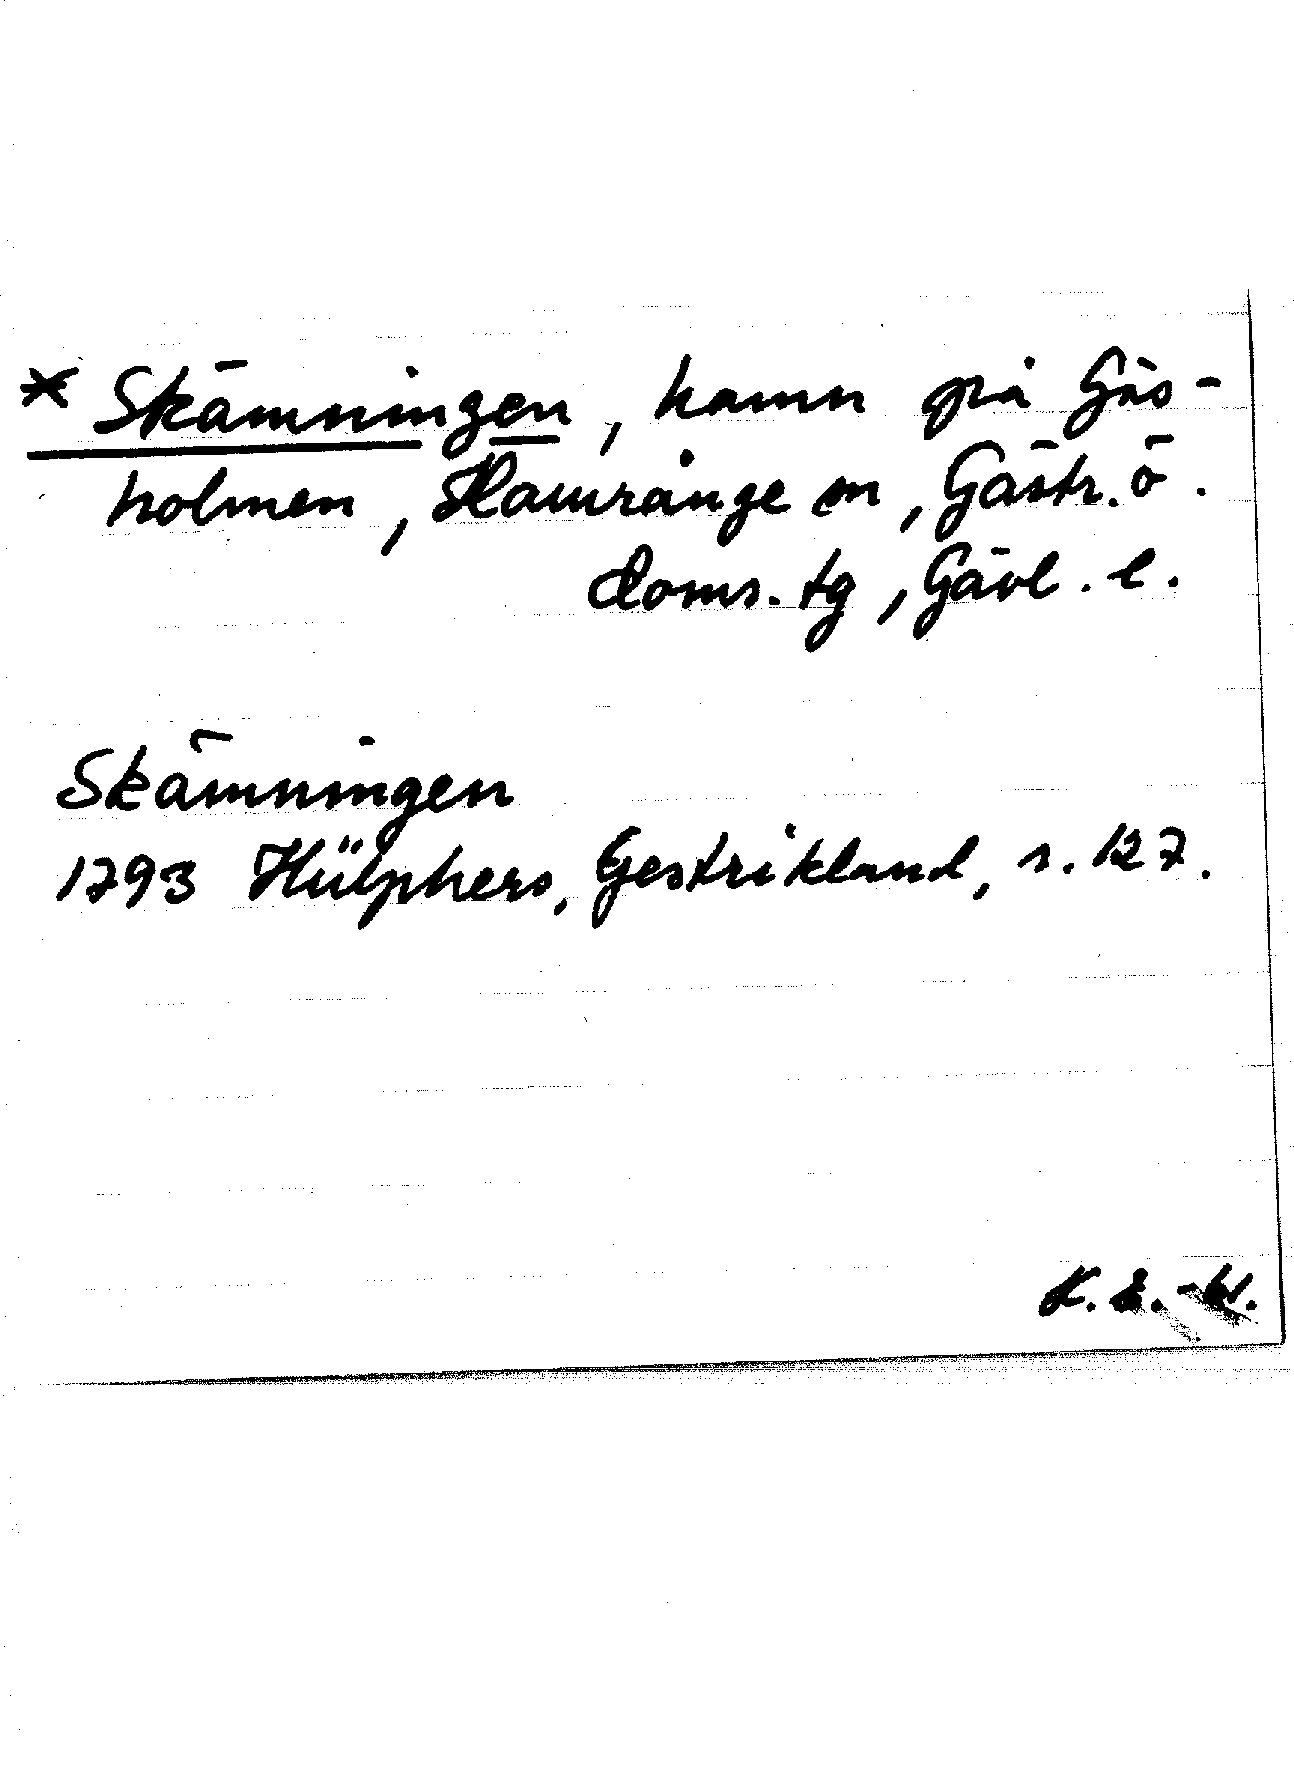 * Skämningen, hamn på Gås-
holmen, Hamrånge sn, Gästr. ö.
doms. tg, Gävl. l.
Skämningen
1793 Hülphers, Gestrikland, s. 127.
K. E.-W.